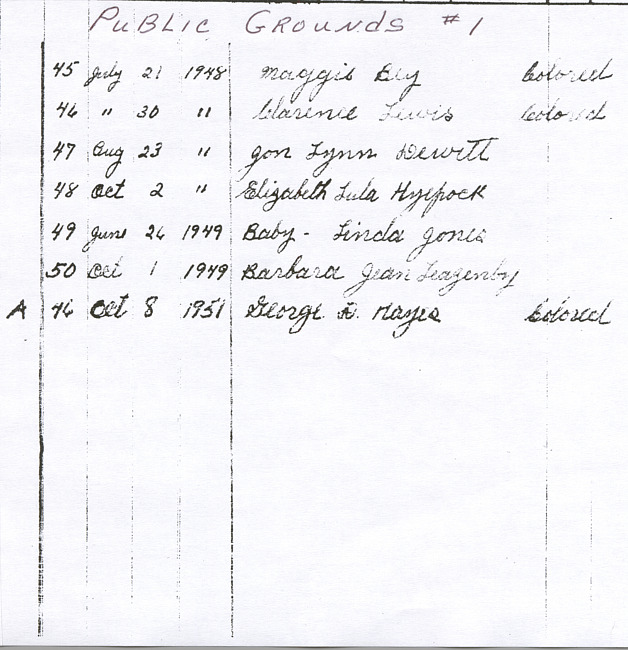 PUBLIC GROUNDS #1
45 July 21 1948 Maggie Bey Colored
46 " 30 " Clarence Lewis Colored
47 Aug 23 " Jon Lynn Dewitt
48 Oct 2 " Elizabeth Lula
49 June 26 1949 Baby - Linda Jones
50 Oct 1 1949 Barbara Jean Leazenby
A 46 Oct 8 1951 George A. Hayes Colored